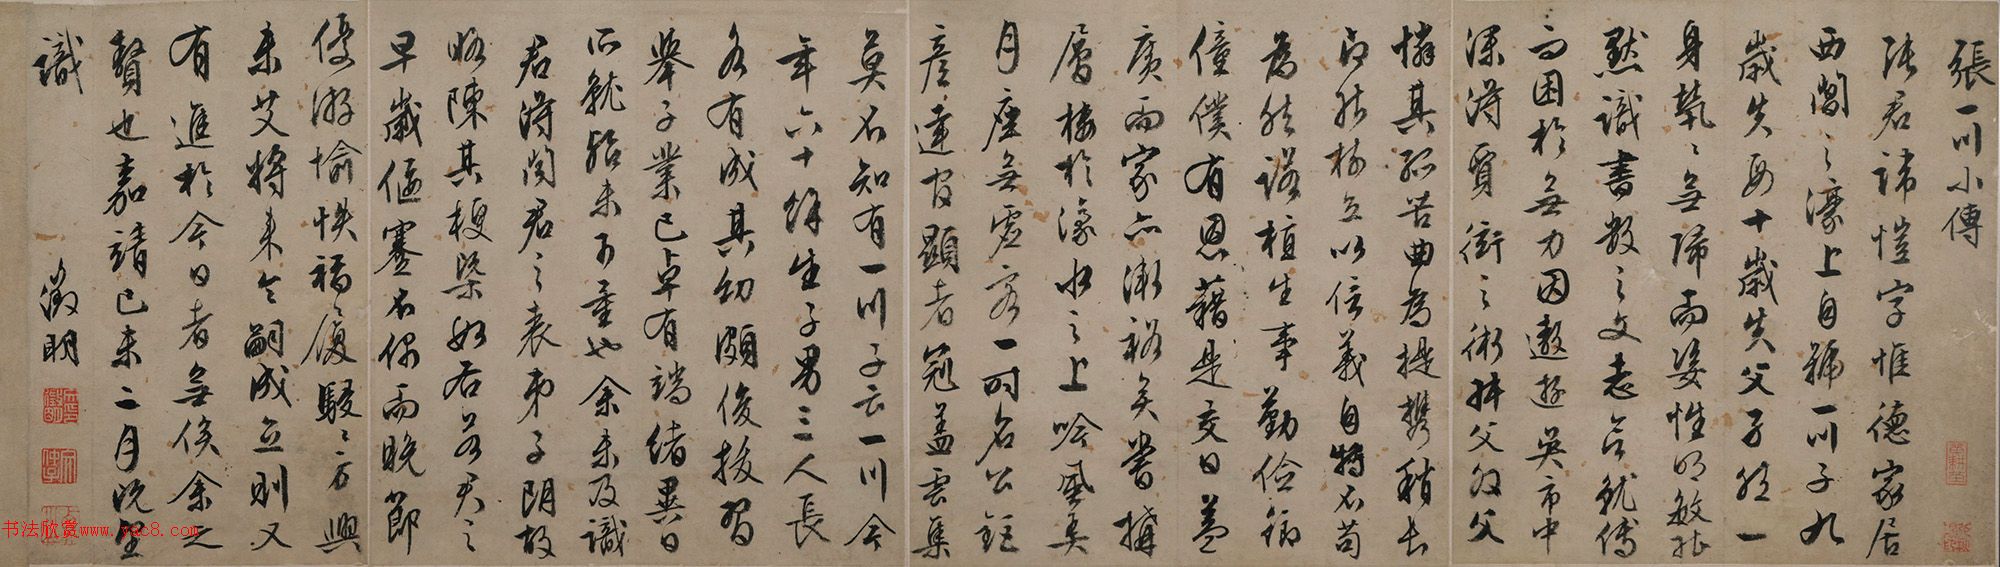 張一川小傳
張君諱愷字惟德家居
西閶之濠上自號一川子九
歲失母十歲失父子然一
身煢煢無歸而姿性明敏能
默識書數之文志欲就傅
而困於無力因遨遊吳市中
深得賈衒之術拜父友父
憐其孤苦曲為提攜稍長
即能樹立以信義自持不苟
為然諾植生事勤儉鈐
僮僕有恩藉是交日益
廣而家亦漸裕矣嘗搆
層樓於濠水之上吟風弄
月座無虛客一時名公鉅
彥達官顯者冠蓋雲集
莫不知有一川子云一川今
年六十餘生子男三人長
各有成其幼頗俊拔習
舉子業已卓有端緒異日
所就殆未可量也余未及識
君得閱君之表弟子朗故
略陳其梗槩如右若君之
早歲偃蹇不偶而晚節
優游愉怢福履駸駸方興
未艾將來令嗣成立則又
有進於今日者無俟余之
贅也嘉靖己未二月既望
徵明
識
书法欣赏www.yac8.com